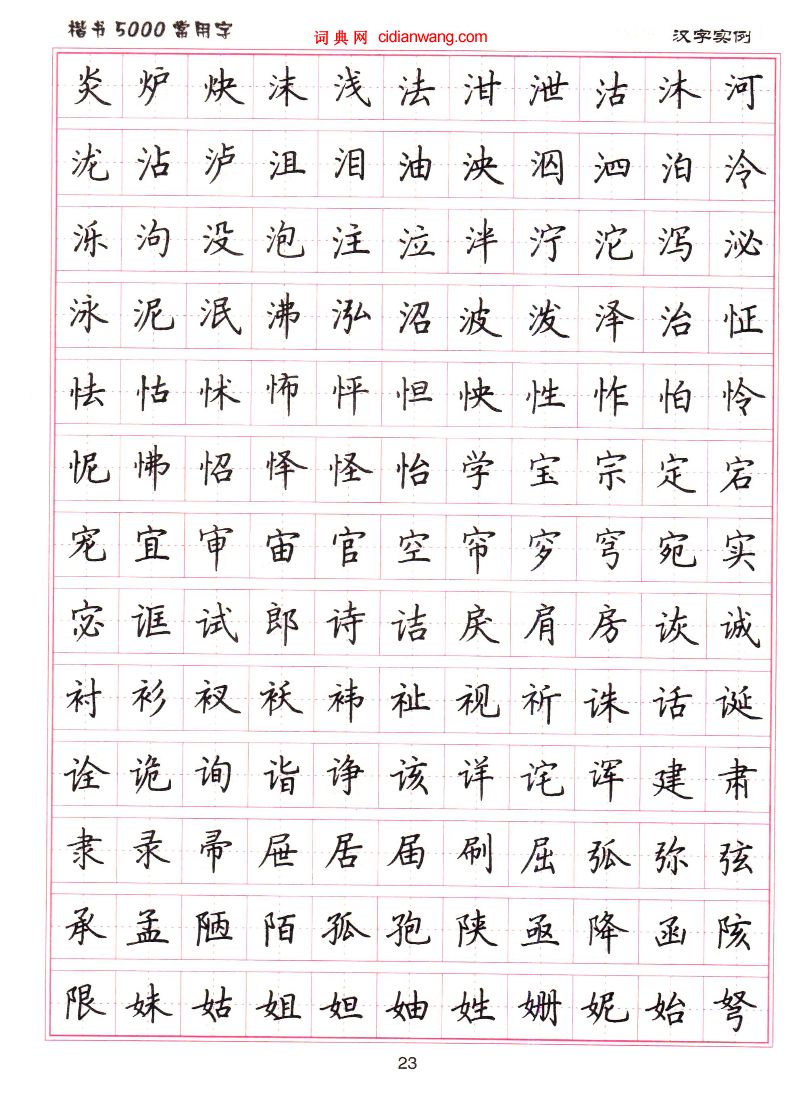 楷书5000常用字 词典网 cidianwang.com 汉字实例
炎炉炔沫浅法泔泄沽沐河
泷沾泸沮泪油泱泅泗泊泠
泺泃没泡注泣泮泞沱泻泌
泳泥泯沸泓沼波泼泽治怔
怯怙怵怖怦怛怏性怍怕怜
怩怫怊怿怪怡学宝宗定宕
宠宜审宙官空帘穸穹宛实
宓诓试郎诗诘戾肩房诙诚
衬衫衩袄袆祉视祈诛话诞
诠诡询诣诤该详诧诨建肃
隶录帚屉居届刷屈弧弥弦
承孟陋陌孤孢陕亟降函陔
限妹姑姐妲妯姓姗妮始弩
23